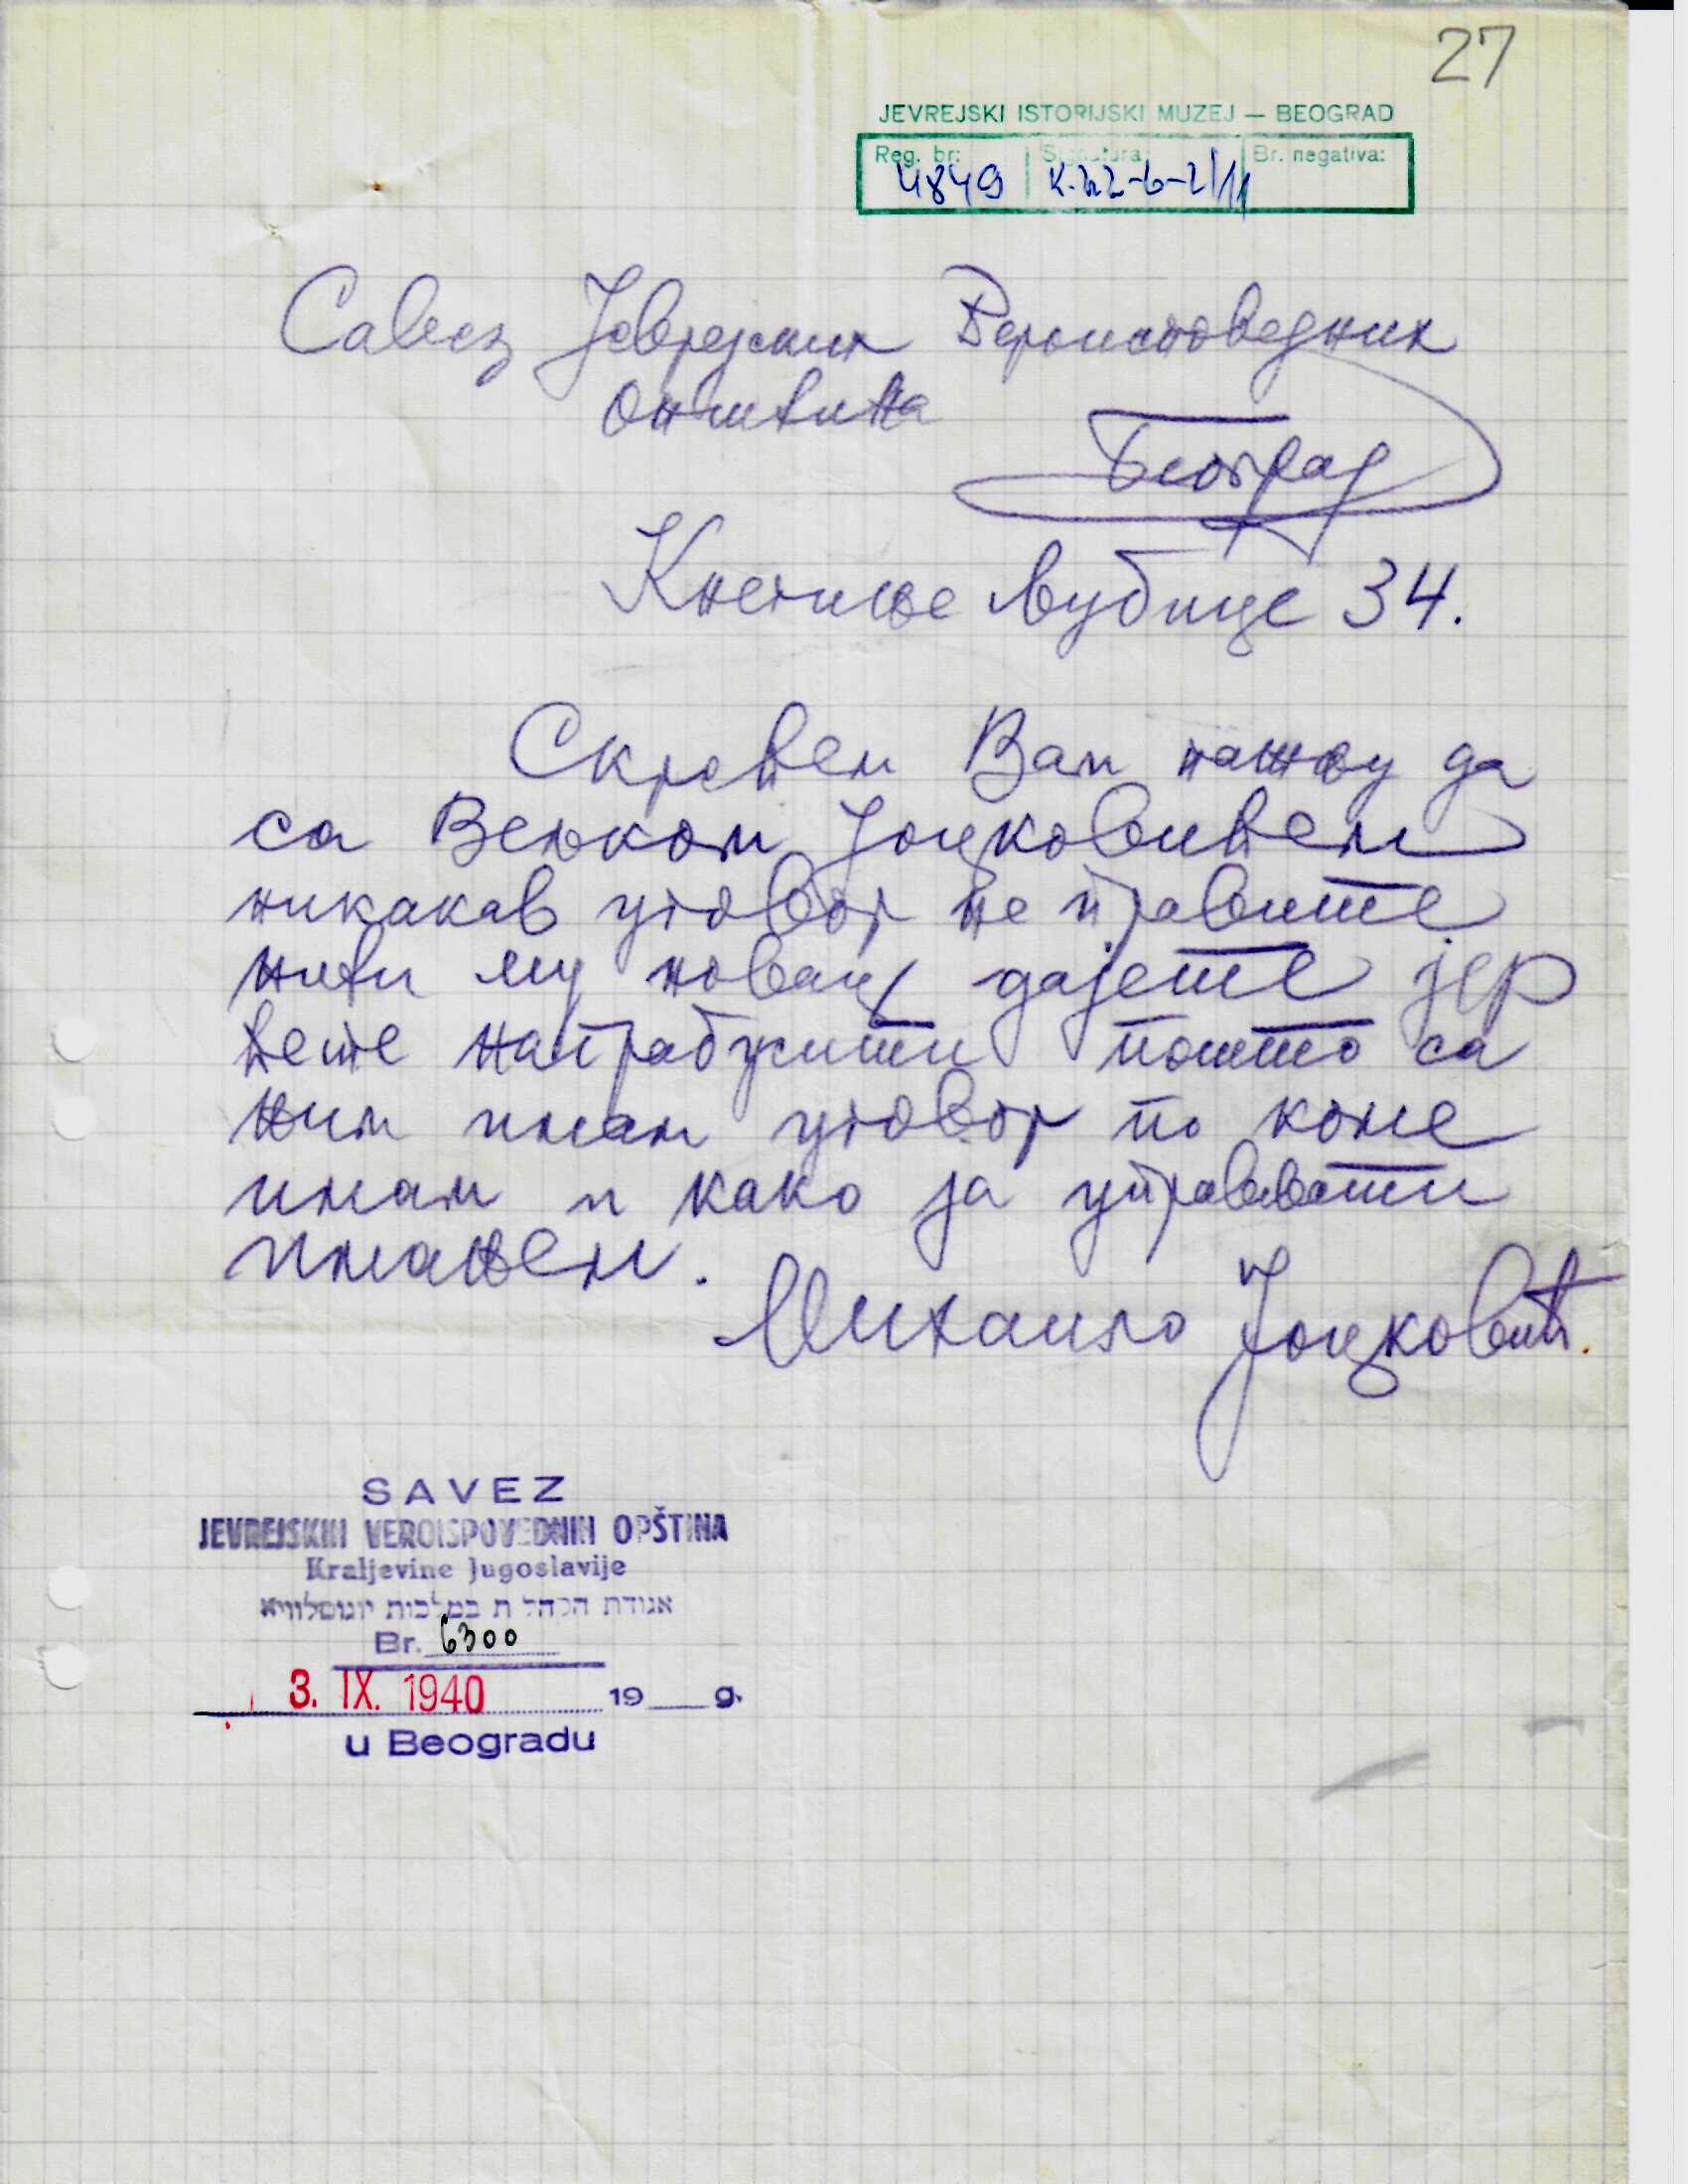 27
JEVREJSKI ISTORIJSKI MUZEJ — BEOGRAD
Reg. br: Signatura: Br. negativa:
4849 K.22-6-2/11
Савез Јеврејских Вероисповедних
Општина
Београд
Кнегиње Љубице 34.
Скрећем Вам пажњу да
са Вељком Јоцковићем
никакав уговор не правите
нити му новац дајете јер
ћете награбусити пошто са
њим имам уговор по коме
имам и како ја управљати
имањем.
Михаило Јоцковић.
SAVEZ
JEVREJSKIH VEROISPOVEDNIH OPŠTINA
Kraljevine Jugoslavije
אגודת הקהלות במלכות יוגוסלוויא
Br. 6300
3. IX. 1940 19 g.
u Beogradu